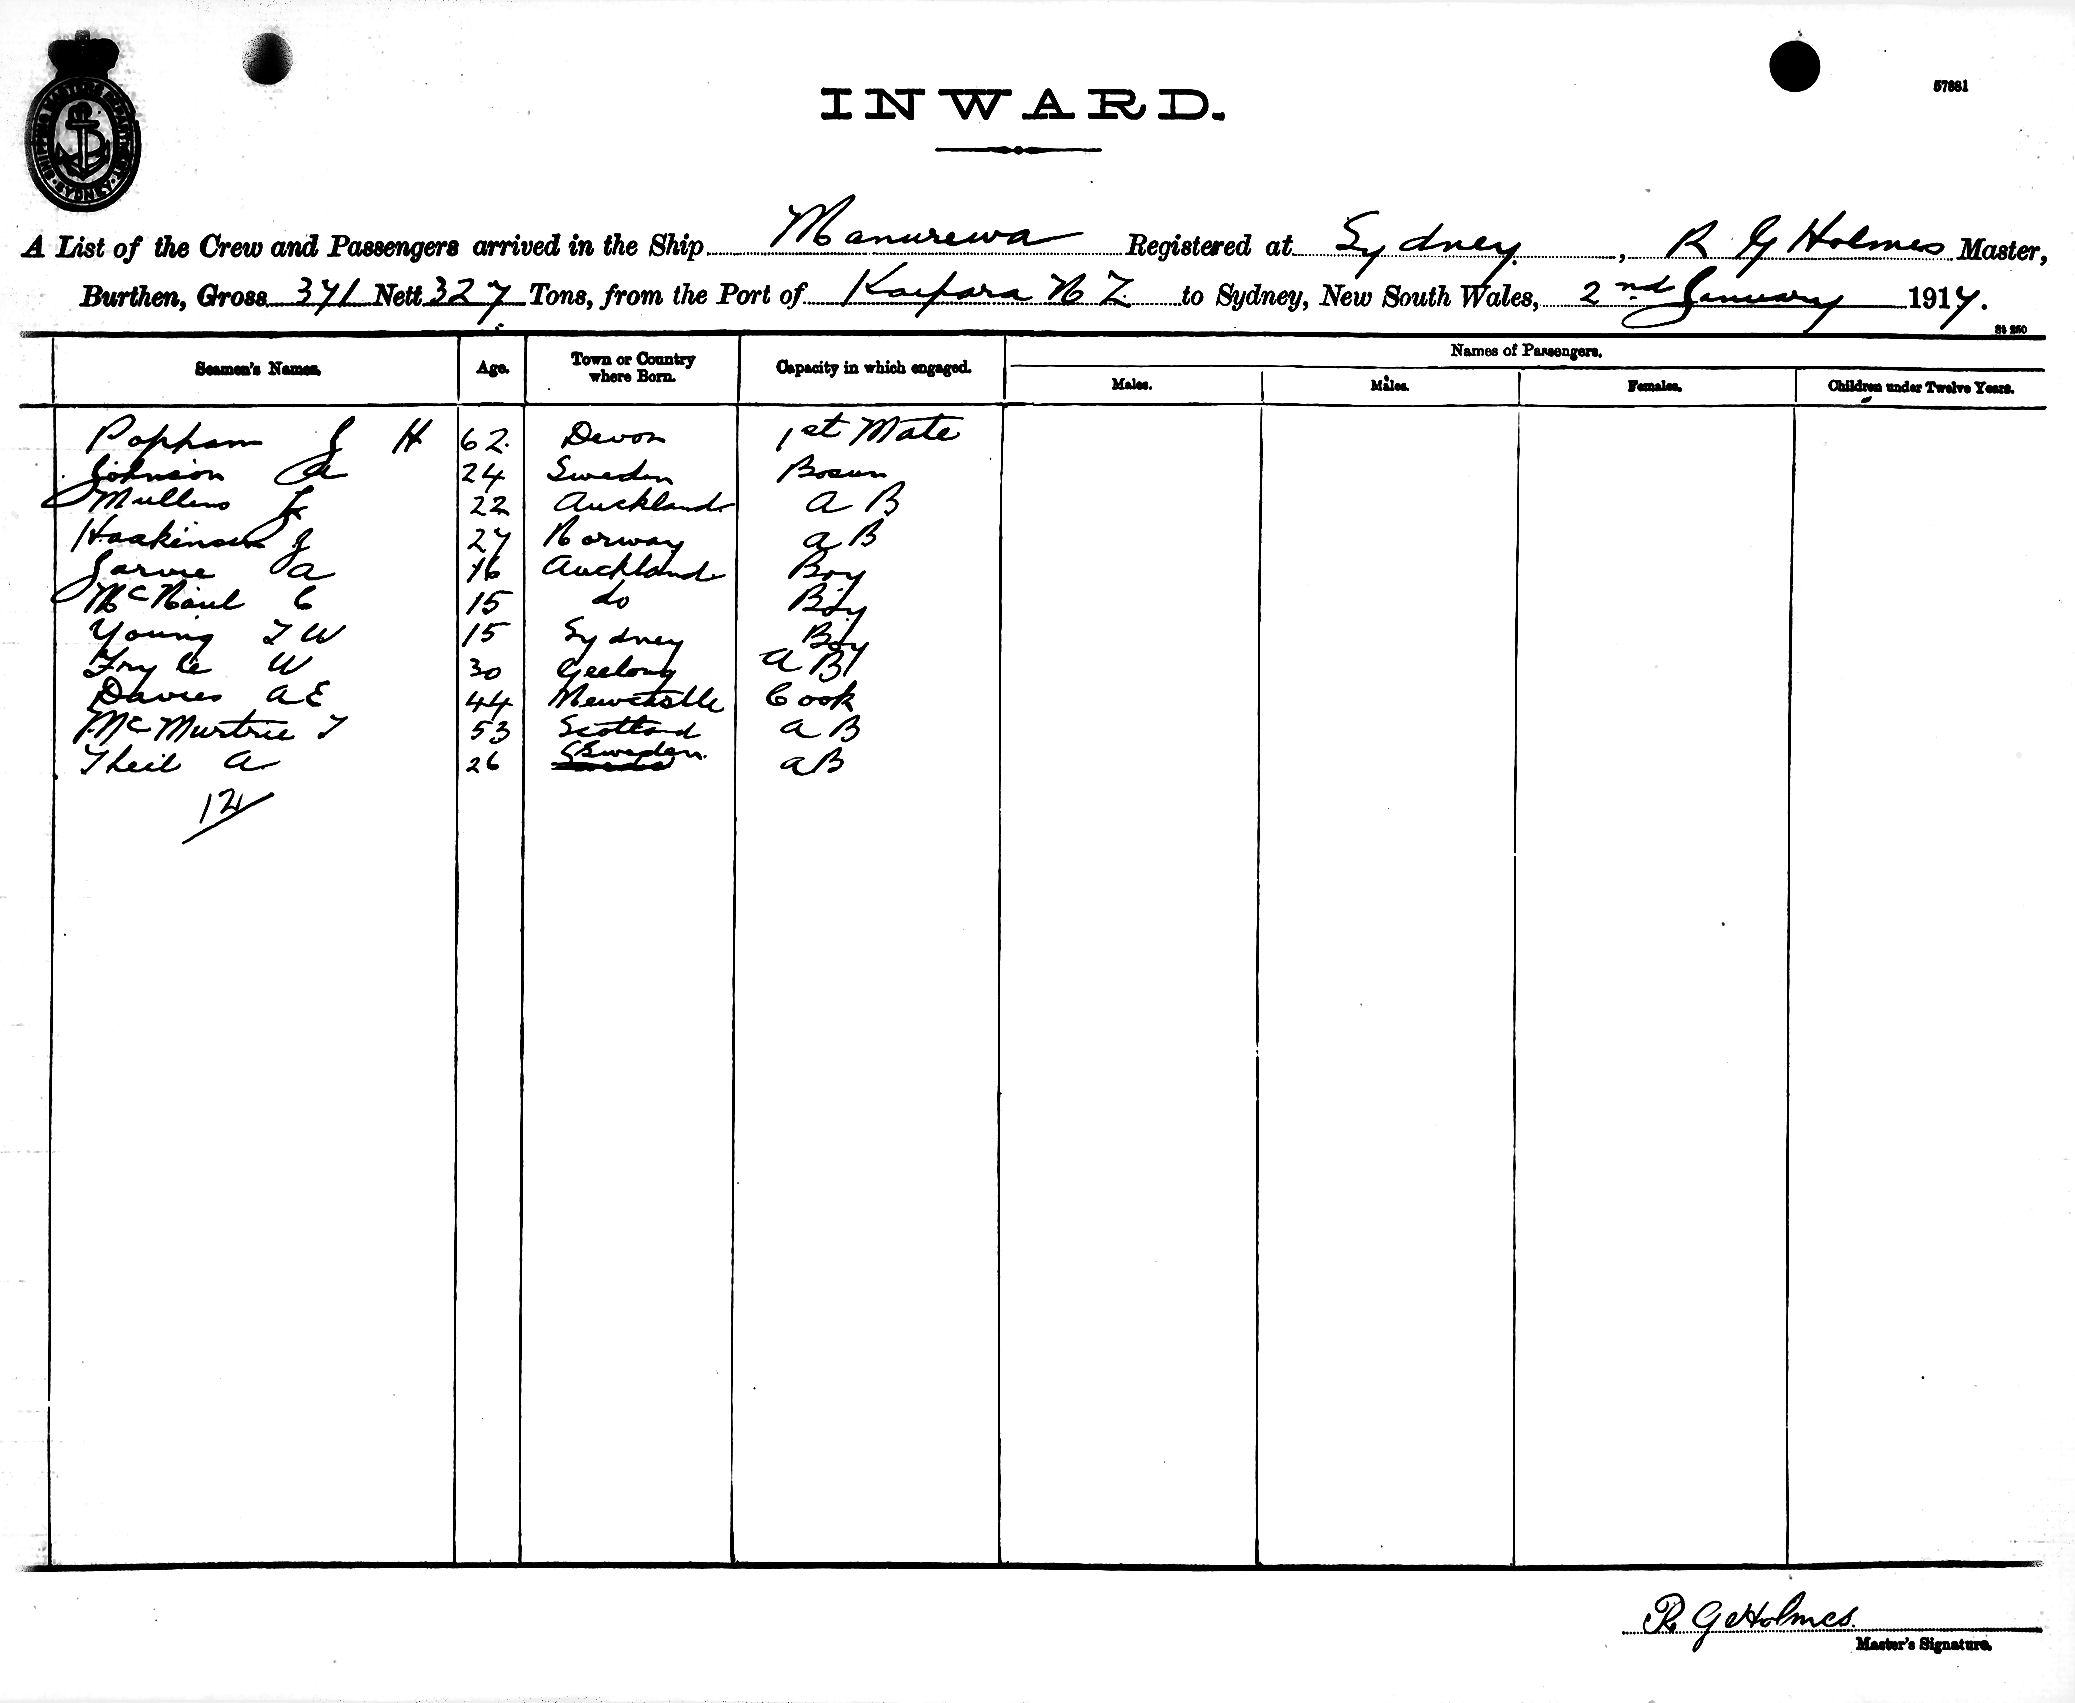 SHIPPING MASTER'S DEPARTMENT SYDNEY
57881
INWARD.
A List of the Crew and Passengers arrived in the Ship Manurewa Registered at Sydney, R G Holmes Master,
Burthen, Gross 371 Nett 327 Tons, from the Port of Kaipara N Z to Sydney, New South Wales, 2nd January 1917.
St 250
Seamen's Names. Age. Town or Country where Born. Capacity in which engaged. Names of Passengers.
Males. Males. Females. Children under Twelve Years.
Popham J H 62. Devon 1st Mate
Johnson A 24 Sweden Bosun
Mullens J 22 Auckland A B
Haakinsen J 27 Norway a B
Jarvie A 16 Auckland Boy
McNaul C 15 do Boy
Young T W 15 Sydney Boy
Fry W 30 Geelong A B
Davies A E 44 Newcastle Cook
McMurtrie T 53 Scotland A B
Theil A 26 Sweden. a B
12
R G Holmes
Master's Signature.